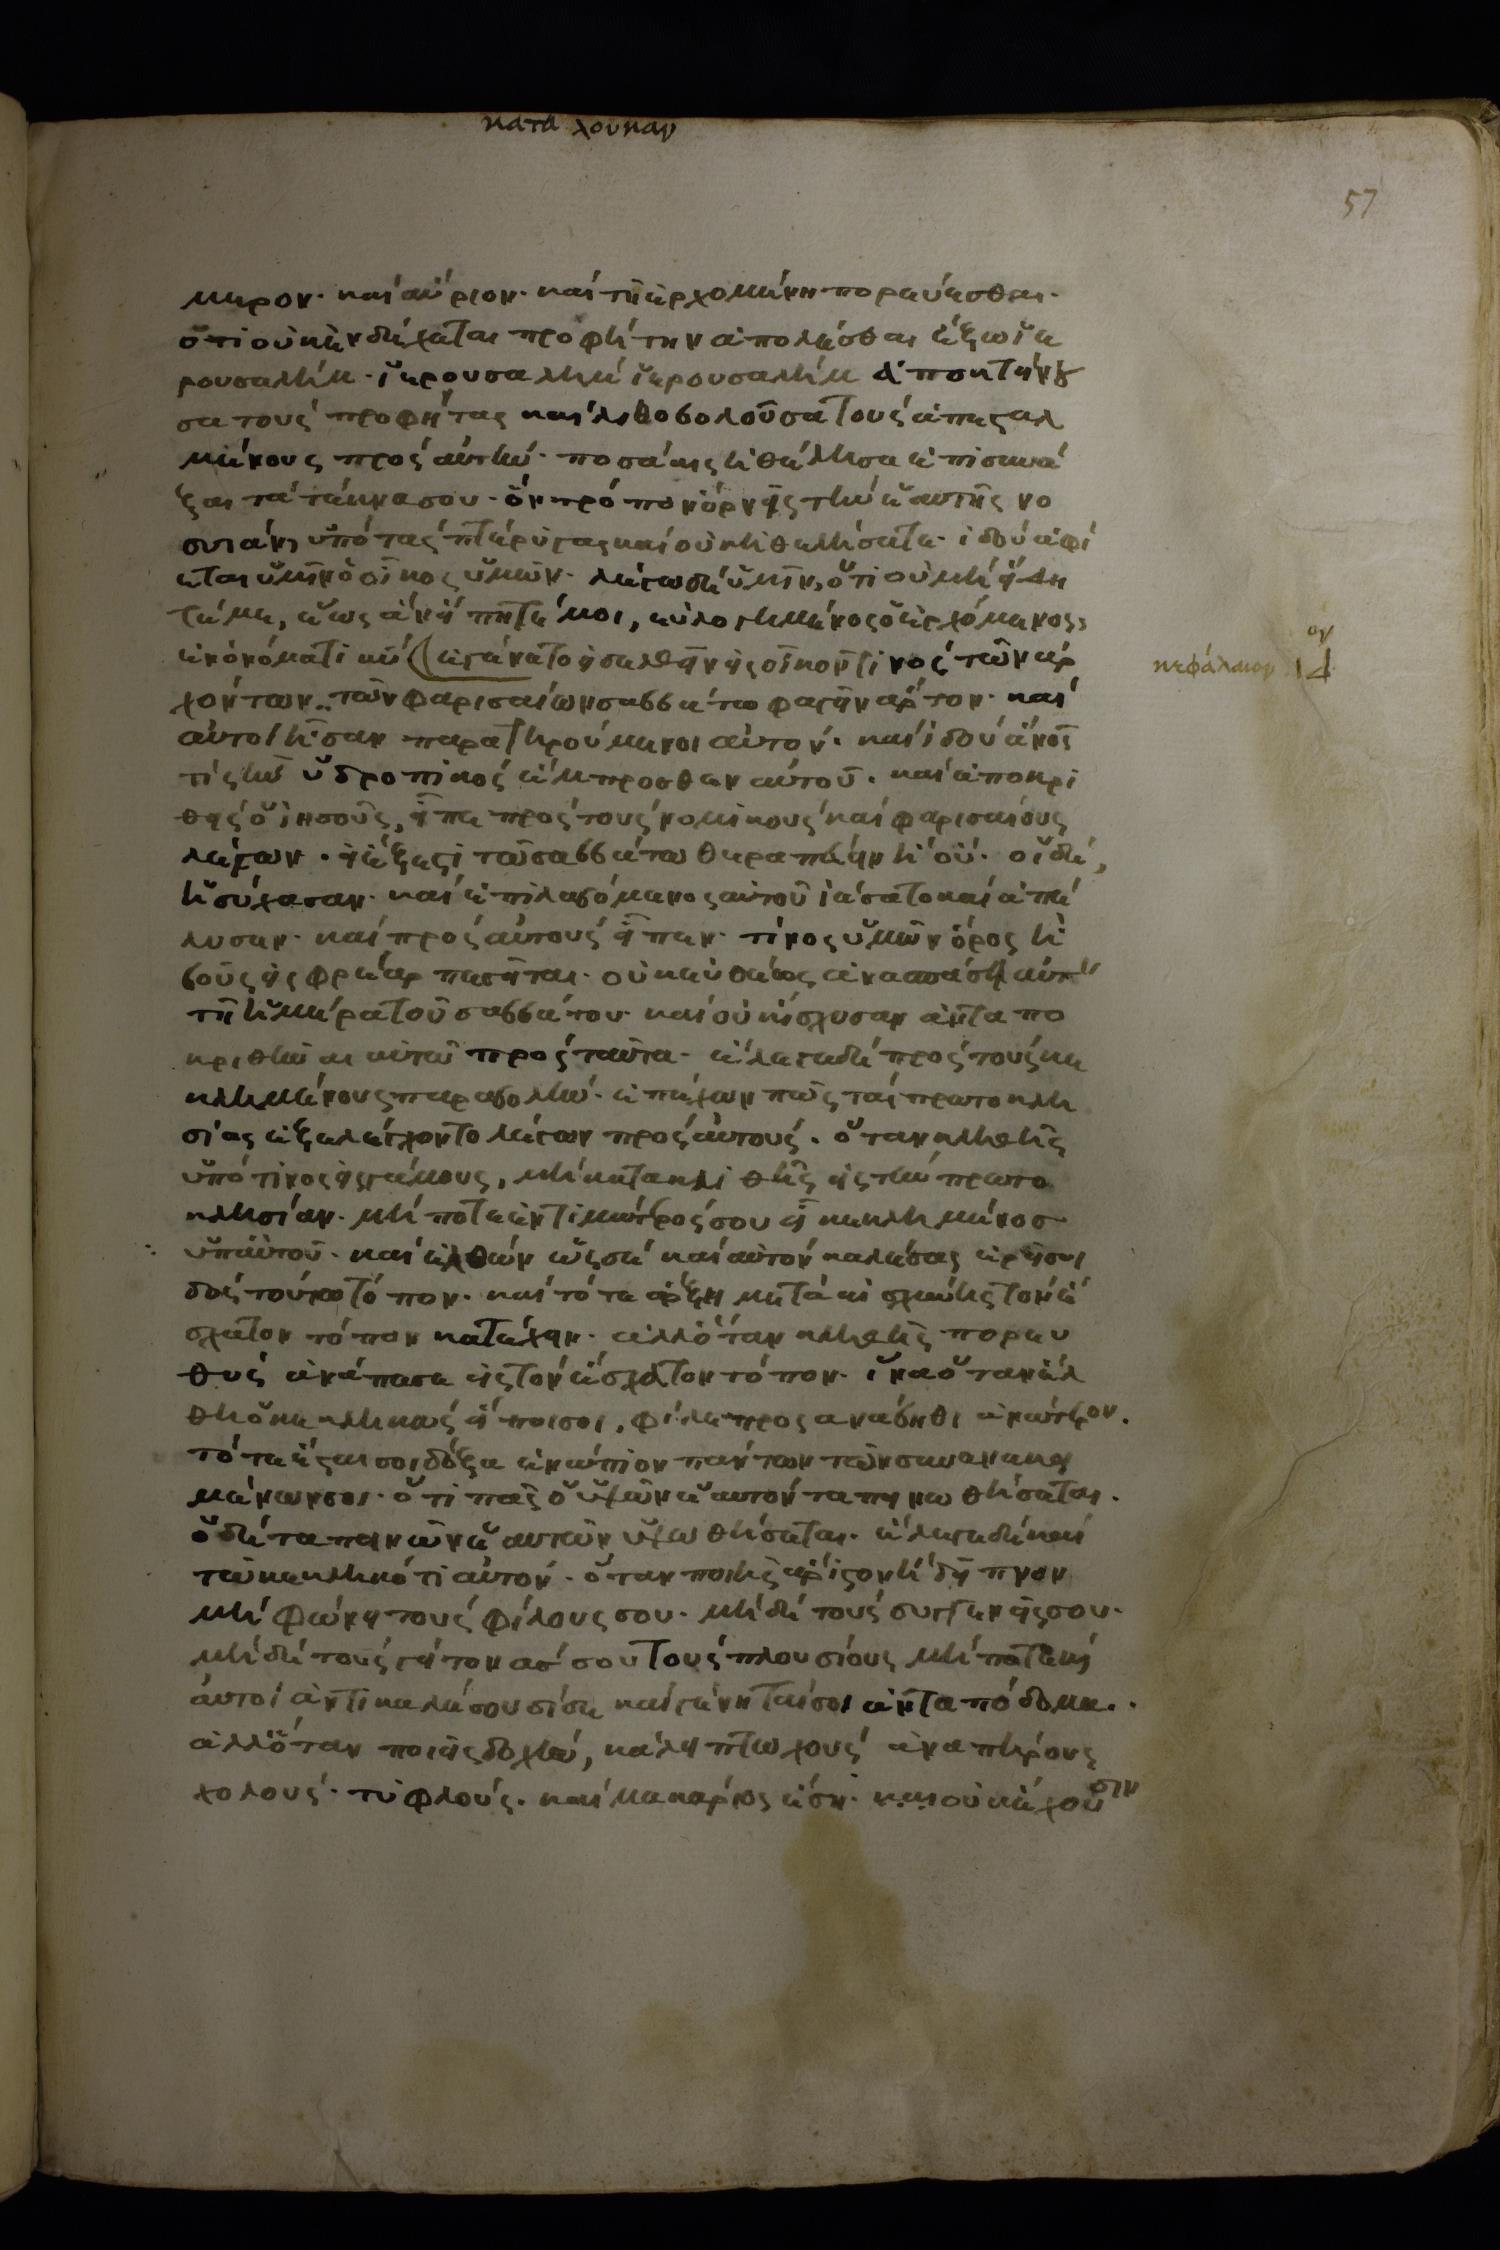 κατα λουκαν
57
μερον· και αύριον· και τῆ ἐρχομένη πορεύεσθαι·
ὅτι οὐκ ἐνδέχεται προφήτην ἀπολέσθαι ἔξω ἱε
ρουσαλήμ· ἱερουσαλημ ἱερουσαλήμ ἀποκτένου
σα τους προφήτας και λιθοβολοῦσα τους ἀπεσταλ
μένους προς αὐτήν· ποσάκις ἠθέλησα ἐπισυνά
ξαι τα τέκνα σου· ὃν τρόπον ὄρνις την ἑαυτῆς νο
σιάν, ὑπό τας πτέρυγας και οὐκ ἠθελήσατε· ἰδού ἀφί
εται ὑμῖν ὁ οἶκος ὑμῶν· λέγω δέ ὑμῖν, ὅτι οὐ μή εἴδη
τέ με, ἕως ἀν εἴπητέ μοι, εὐλογημένος ὁ ἐρχόμενος,
ἐν ὀνόματι κυ ἐγένετο εἰσελθεῖν εἰς οἶκον τινος τῶν ἀρ
χόντων τῶν φαρισαίων σαββάτω φαγεῖν ἄρτον· και
αὐτοί ἦσαν παρατηρούμενοι αὐτόν· και ἰδού ἄνος
τίς ἦν ὑδροπικος ἔμπροσθεν αὐτοῦ· και ἀποκρι
θείς ὁ ἰησοῦς, εἶπε προς τους νομικους και φαρισαίους
λέγων· εἰ ἔξεστι τῶ σαββάτω θεραπεύειν ἤ οὐ· οἱ δέ,
ἡσύχασαν· και ἐπιλαβόμενος αὐτοῦ ἰάσατο και ἀπέ
λυσεν· και προς αὐτους εἶπεν· τίνος ὑμῶν ὄνος ἤ
βοῦς εἰς φρέαρ πεσεῖται· οὐκ εὐθέως ἀνασπάσει αὐτόν
τῆ ἡμέρα τοῦ σαββάτου· και οὐκ ἴσχυσαν ἀνταπο
κριθῆναι αὐτῶ προς ταῦτα· ἔλεγε δέ προς τους κε
κλημένους παραβολήν· ἐπέχων πῶς τάς πρωτοκλη
σίας ἐξελέγοντο λέγων προς αὐτους· ὅταν κληθῆς
ὑπό τινος εἰς γάμους, μή κατακλιθῆς εἰς την πρωτο
κλησίαν· μή ποτε ἐντιμώτερός σου εἶ κεκλημένος
ὑπ αὐτοῦ· και ἐλθών ὧς σέ και αὐτον καλέσας ἐρεῖ σοι
δός τούτο τόπον· και τότε ἄρξη μετά αἰσχύνης τον ἔ
σχατον τόπον κατέχειν· ἀλλ ὅταν κληθῆς πορευ
θείς ἀνάπεσε εἰς τον ἔσχατον τόπον· ἵνα ὅταν ἔλ
θη ὁ κεκληκώς εἴποι σοι, φίλε προσανάβηθι ἀνώτερον.
τότε ἔσται σοι δόξα ἐνώπιον πάντων τῶν συνανακει
μένων σοι· ὅτι πᾶς ὁ ὑψῶν ἑαυτον ταπεινωθήσεται.
ὁ δέ ταπεινῶν ἑαυτον ὑψωθήσεται· ἔλεγε δέ και
τῶ κεκληκότι αὐτόν· ὅταν ποιῆς ἄριστον ἤ δεῖπνον
μή φώνει τους φίλους σου· μή δέ τους συγγενεῖς σου·
μή δέ τους γείτονάς σου τους πλουσίους μή ποτε και
αὐτοι ἀντικαλέσουσί σε και γένηταί σοι ἀνταπόδομα.
ἀλλ ὅταν ποιῆς δοχήν, κάλει πτωχους ἀναπήρους
χολους· τυφλούς· και μακάριος ἔση· και οὐκ ἔχουσιν
κεφάλαιον
ογ
ΙΔ